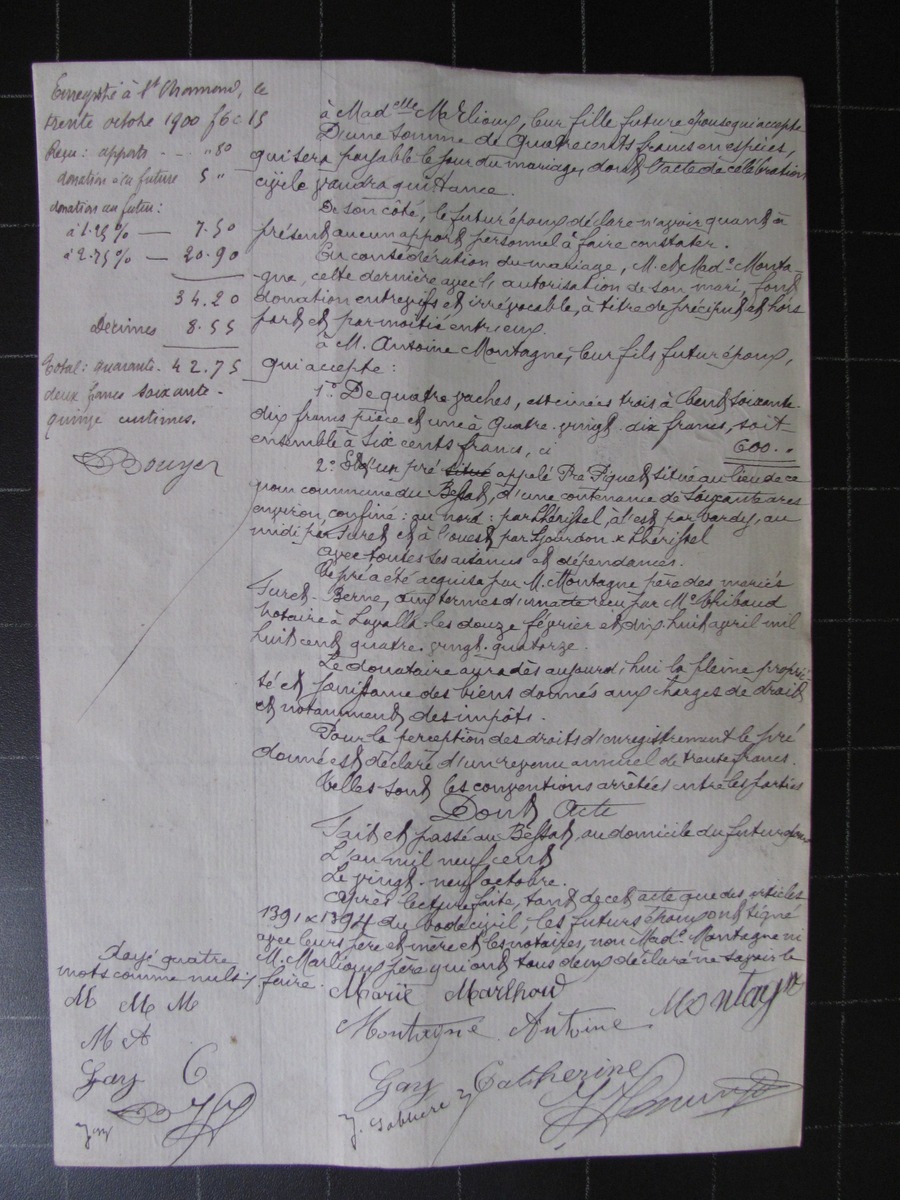 Enregistré à St Chamond, le
trente octobre 1900 f 6 c 15
Reçu : apports - - - " 80
donation à la future 5 "
donation au futur :
à 1.25 % — 7.50
à 2.75 % — 20.90
34.20
Décimes 8.55
Total : quarante - 42.75
deux francs soixante -
quinze centimes.
Bouyer
à Madelle Marlioux, leur fille future épouse qui accepte
D'une somme de quatre cents francs en espèces,
qui sera payable le jour du mariage, dont l'acte de célébration
civile vaudra quittance.
De son côté, le futur époux déclare n'avoir quant à
présent aucun apport personnel à faire constater.
En considération du mariage, M. et Made Monta-
-gne, cette dernière avec l'autorisation de son mari, font
donation entre vifs et irrévocable, à titre de préciput et hors
part et par moitié entre eux
à M. Antoine Montagne, leur fils futur époux,
qui accepte :
1° De quatre vaches, estimées trois à Cent soixante-
dix francs pièce et une à quatre-vingt-dix francs, soit
ensemble à six cents francs, ci 600..
2° Et d'un pré situé appelé Pré Piquet situé au lieu de ce
nom commune du Bessat, d'une contenance de soixante ares
environ confiné : au nord : par Lhéristel, à l'est par Vardy, au
midi par Turet et à l'ouest par Gourdon & Lhéristel
avec toutes ses aisances et dépendances.
Ce pré a été acquis par M. Montagne père des mariés
Turet-Berne, aux termes d'un acte reçu par Me Thibaud
notaire à Lavalla les douze février et dix huit avril mil
huit cent quatre-vingt-quatorze.
Le donataire aura dès aujourd'hui la pleine proprié-
té et jouissance des biens donnés aux charges de droit
et notamment des impôts.
Pour la perception des droits d'enregistrement le pré
donné est déclaré d'un revenu annuel de trente francs.
Telles sont les conventions arrêtées entre les parties
Dont Acte
Fait et passé au Bessat, au domicile du futur époux
L'an mil neuf cent
Le vingt-neuf octobre.
Après lecture faite, tant de cet acte que des articles
1391 & 1394 du Code civil, les futurs époux ont signé
avec leurs père et mère et les notaires, non Made Montagne ni
M. Marlioux père qui ont tous deux déclaré ne savoir le
faire.
Rayé quatre
mots comme nuls
M M M
M A
Gay C
Marie Marlhoux
Montagne
Montagne Antoine
Gay Catherine